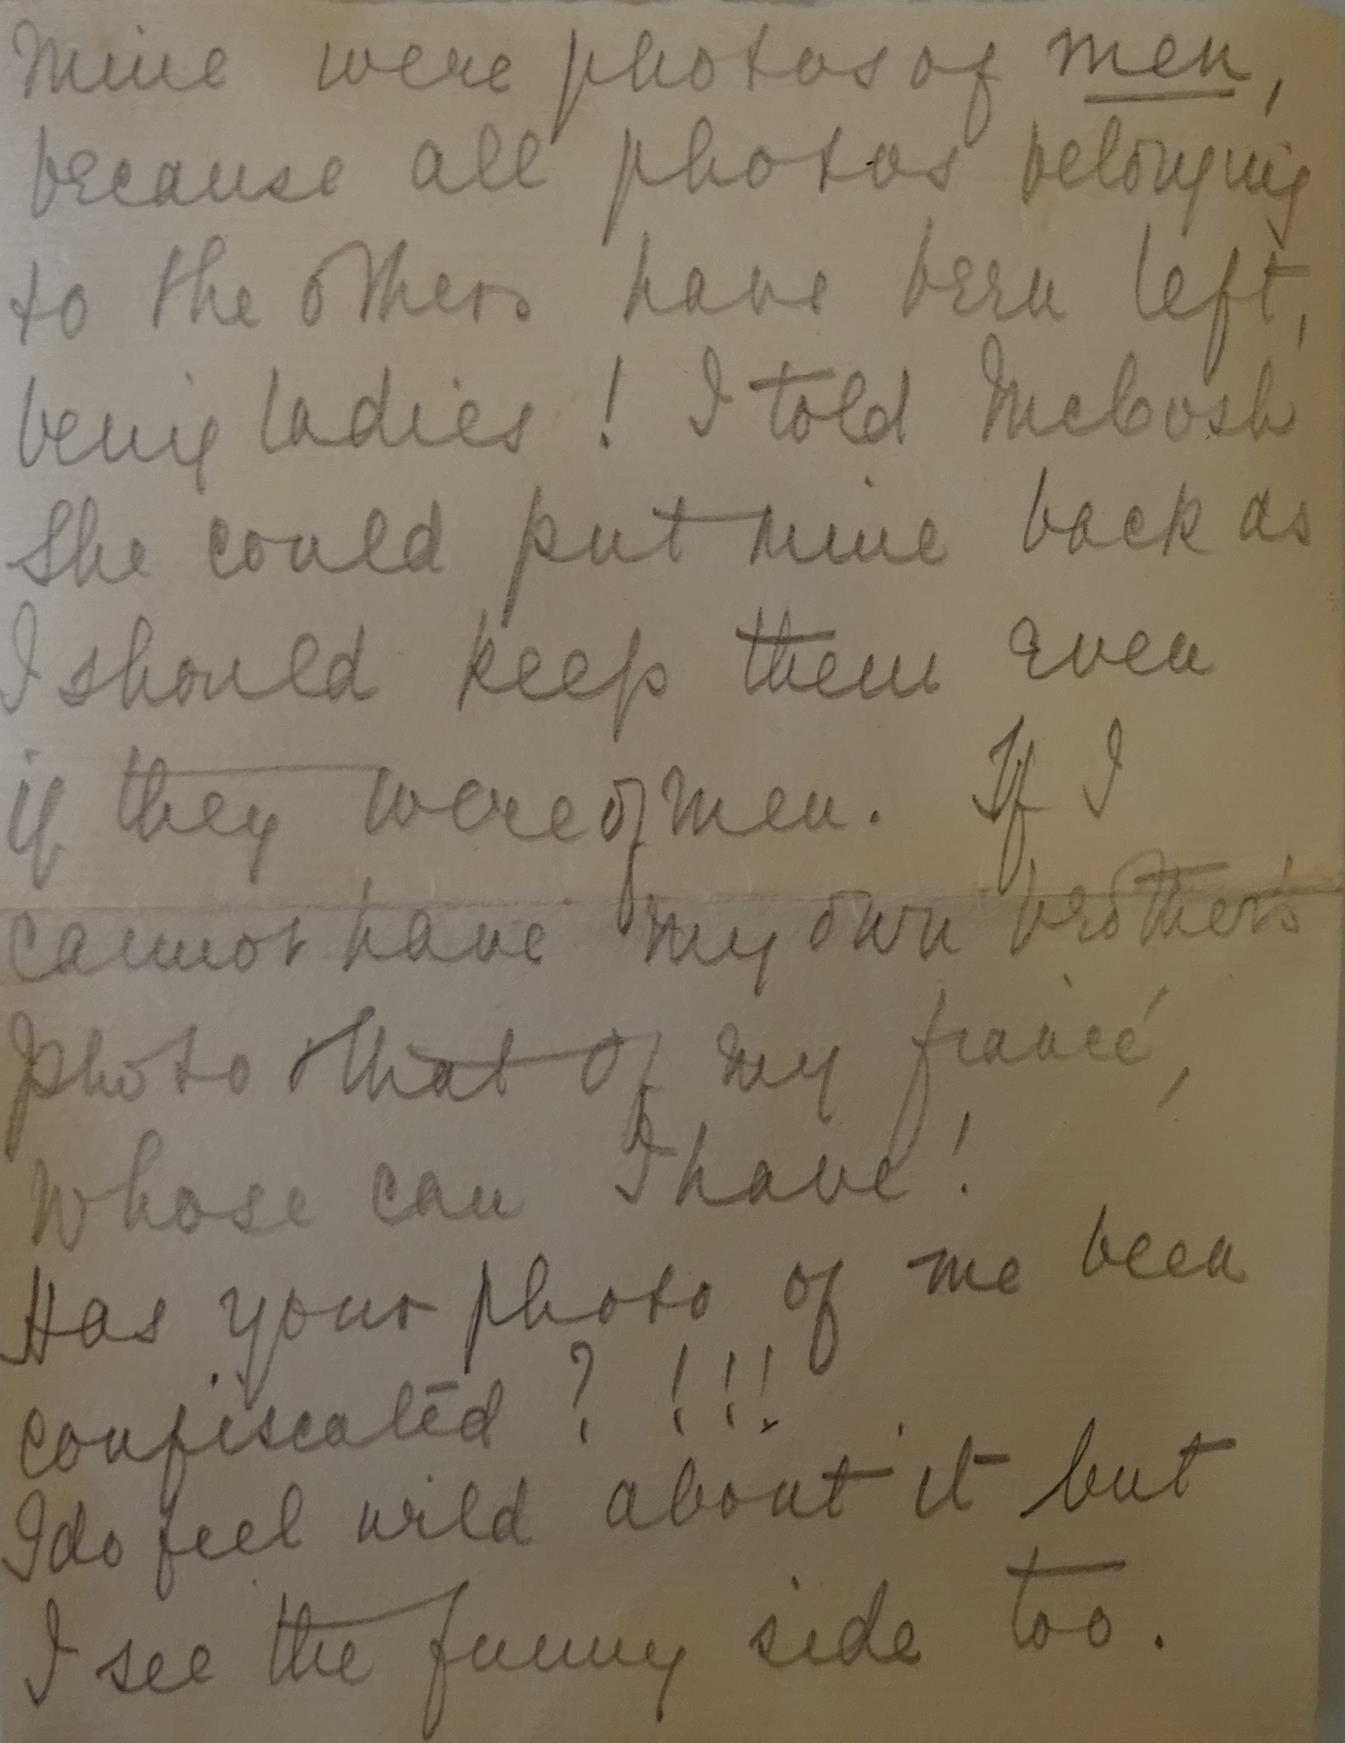 mine were photos of men,
because all photos belonging
to the others have been left,
being ladies! I told McCosh
she could put mine back as
I should keep them even
if they were of men. If I
cannot have my own brother's
photo & that of my fiancé,
whose can I have!
Has your photo of me been
confiscated? !!!
I do feel wild about it but
I see the funny side too.